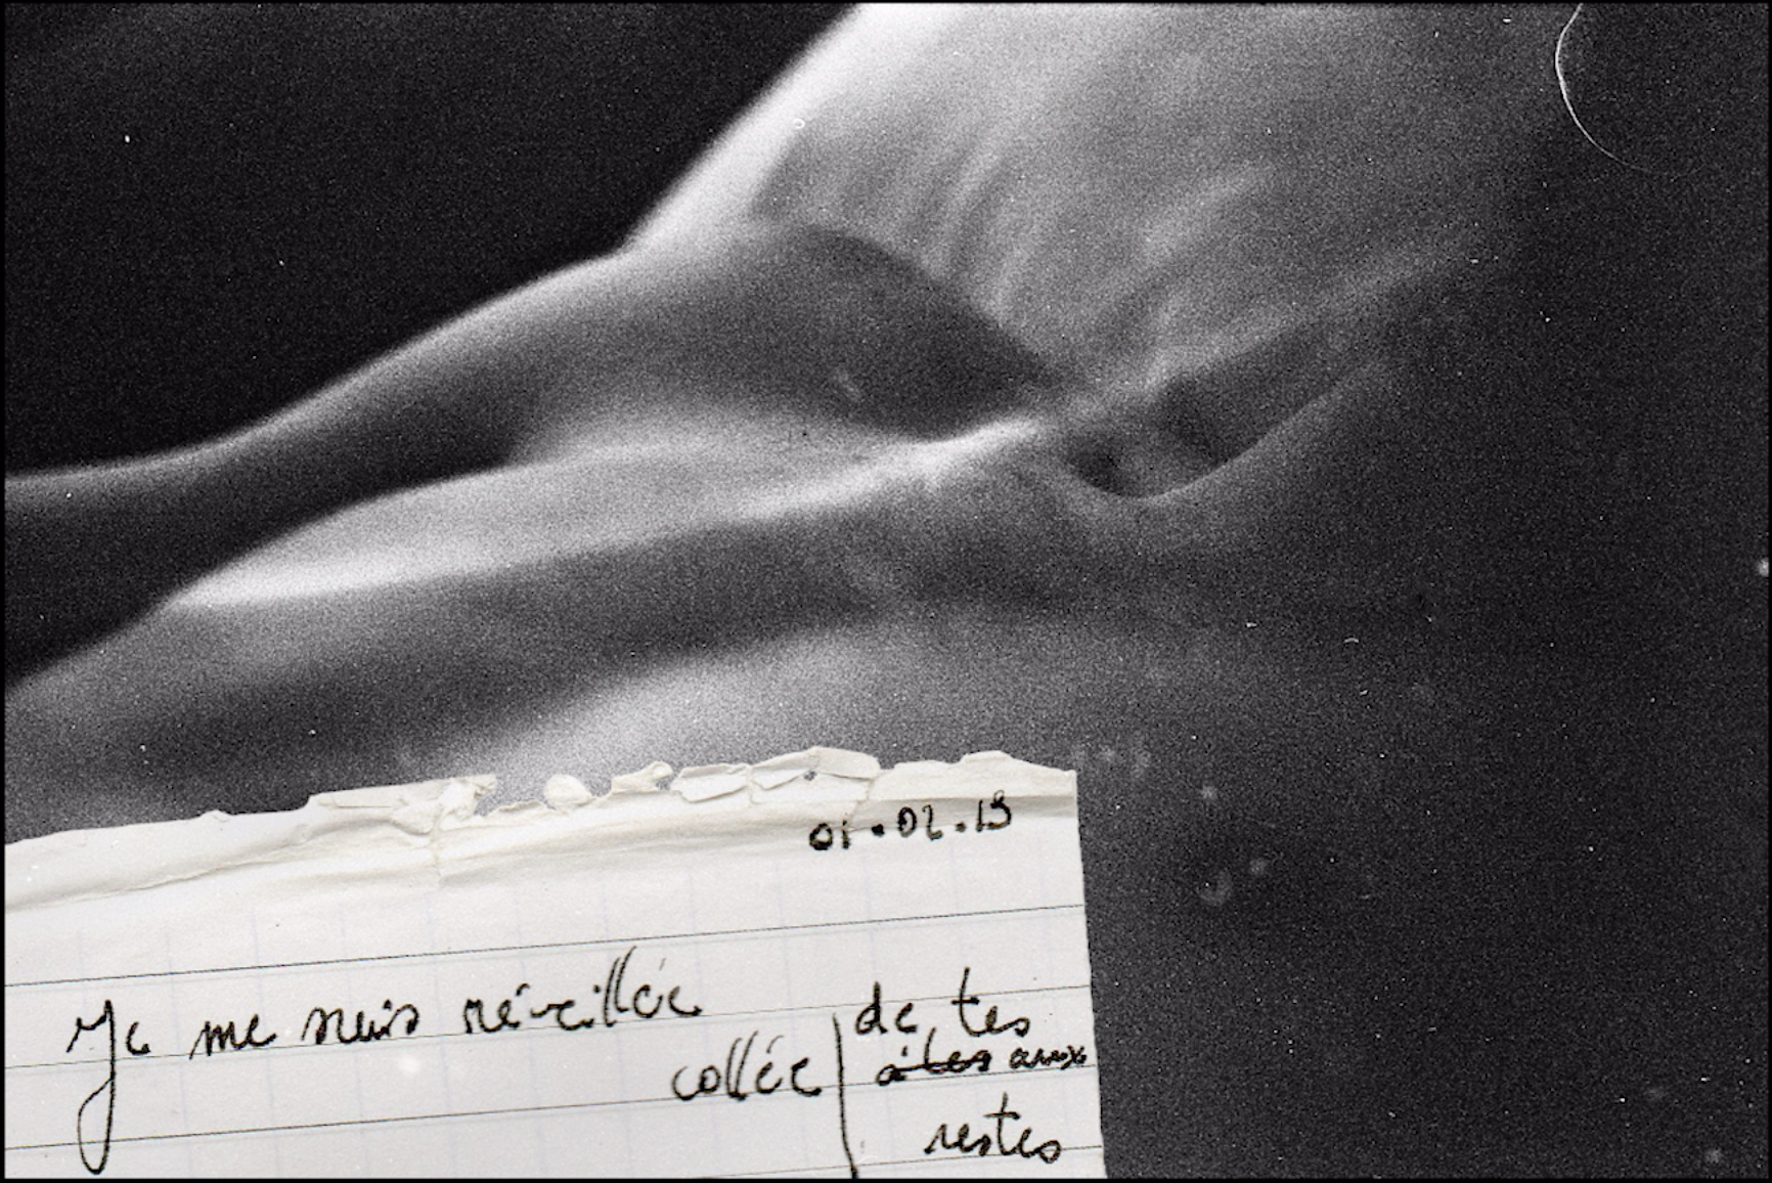 01.02.19
Je me suis réveillée
collée | de tes
à tes aux
restes